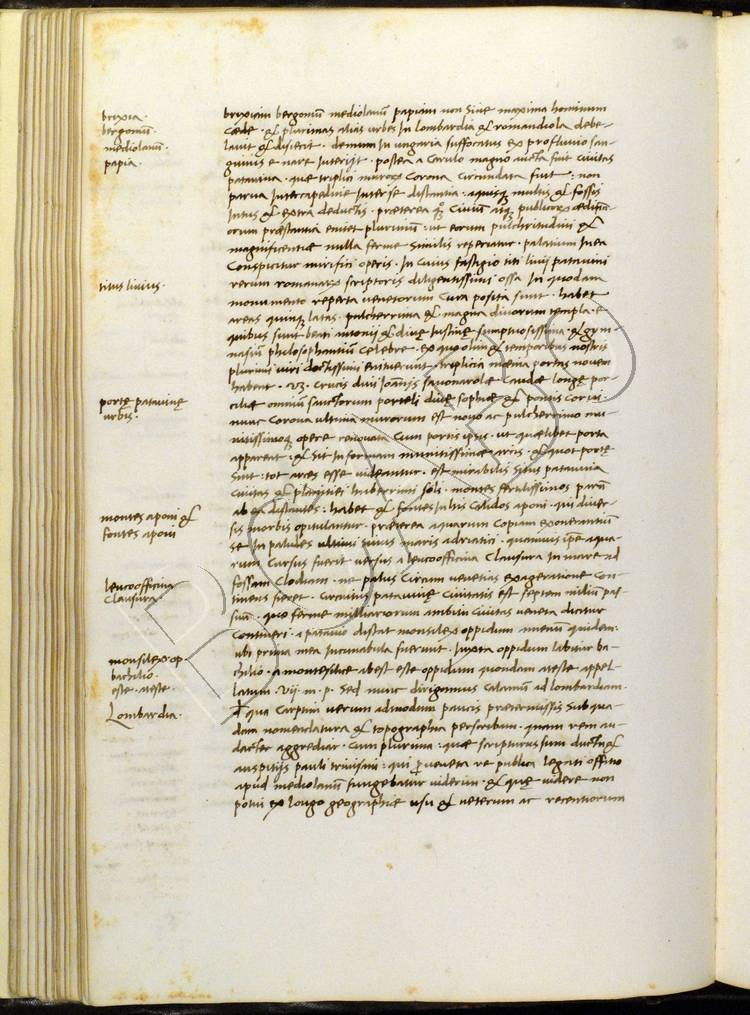 brixia.
bergomū.
mediolanū.
papia.
titus livius.
portę patavinę
urbis.
montes aponi &
fontes aponi
leucoofficina
Clausura.
monsilex op.
bachilio.
este. ateste.
Lombardia.
brixiam bergomū mediolanū papiam non sine maxima hominum
cæde. & plurimas alias urbes In lombardia & romandiola debe-
lavit & disiecit. demum in ungaria suffocatus ex profluvio san-
guinis e nare Interijt. postea a Carulo magno aucta fuit civitas
patavina. que triplici muroꝝ Corona circundata fuit. non
parva Intercapedine Inter se distantia. aquisqꝫ multis & fossis
Intus & extra deductis. præterea Civiū publicoꝝ ædifici-
orum præstantia eminet plurimum. ut eorum pulchritudini &
magnificentiæ nulla ferme similis reperiatur. palatium In ea
Conspicitur mirifici operis. In cuius fastigio titi livij patavini
rerum romanaꝝ scriptoris diligentissimi ossa In quodam
monumento reperta venetorum Cura posita sunt. habet
areas quinqꝫ latas. pulcherrima & magna divorum templa. e
quibus sunt beati antonii & divę Iustinę sumptuosissima. & gym-
nasiū philosophantiū Celebre. ex quo olim & temporibus nostris
plurimi viri doctissimi emerunt. triplicia mœnia portas novem
habent. vꝫ. Crucis divi Ioānis savonarolæ Caudæ longę por-
ciliæ omniū sanctorum portelli divę sophię & pontis corvi.
nunc Corona ultima murorum est novo ac pulcherrimo mu-
nitissimoqꝫ opere renovata Cum portis ipsis. ut quælibet porta
appareat. & sit In formam munitissimæ arcis. & quot portę
sunt. tot arces esse videantur. est mirabilis situs patavina
civitas & planities huberrimi soli. montes fertilissimos parū
ab ea distantes. habet & fontes In his calidos aponi. qui diver-
sis morbis opitulantur. præterea aquarum Copiam exonerantiū
se In paludes ultimi sinus maris adriatici. quamvis ipse aqua-
rum Cursus fuerit versus a leucoofficina Clausura In mare ad
fossam Clodiam. ne palus Circum venetias exageratione Con-
tinens fieret. Circuitus patavinę Civitatis est septem miliū pas-
suū. quo ferme milliariorum ambitu Civitas veneta dicitur
Contineri. a patavio distat monsilex oppidum amenū quidem.
ubi prima mea Incunabula fuerunt. Iuxta oppidum labitur ba-
chilio. a montesilice abest este oppidum quondam ateste appel-
latum. vij. m. p. sed nunc dirigamus Calamū ad lombardiam.
de qua Carptim verum admodum paucis prætermissis sub qua-
dam nomenclatura & topographia perscribam. quam rem au-
dacter aggrediar. cum plurima. quæ scripturus sum ductu &
auspitijs pauli trivisani. qui p̱ veneta re publica legati offitio
apud mediolanū fungebatur viderim. & quę videre non
potui ex longo geographię usu & veterum ac recentiorum